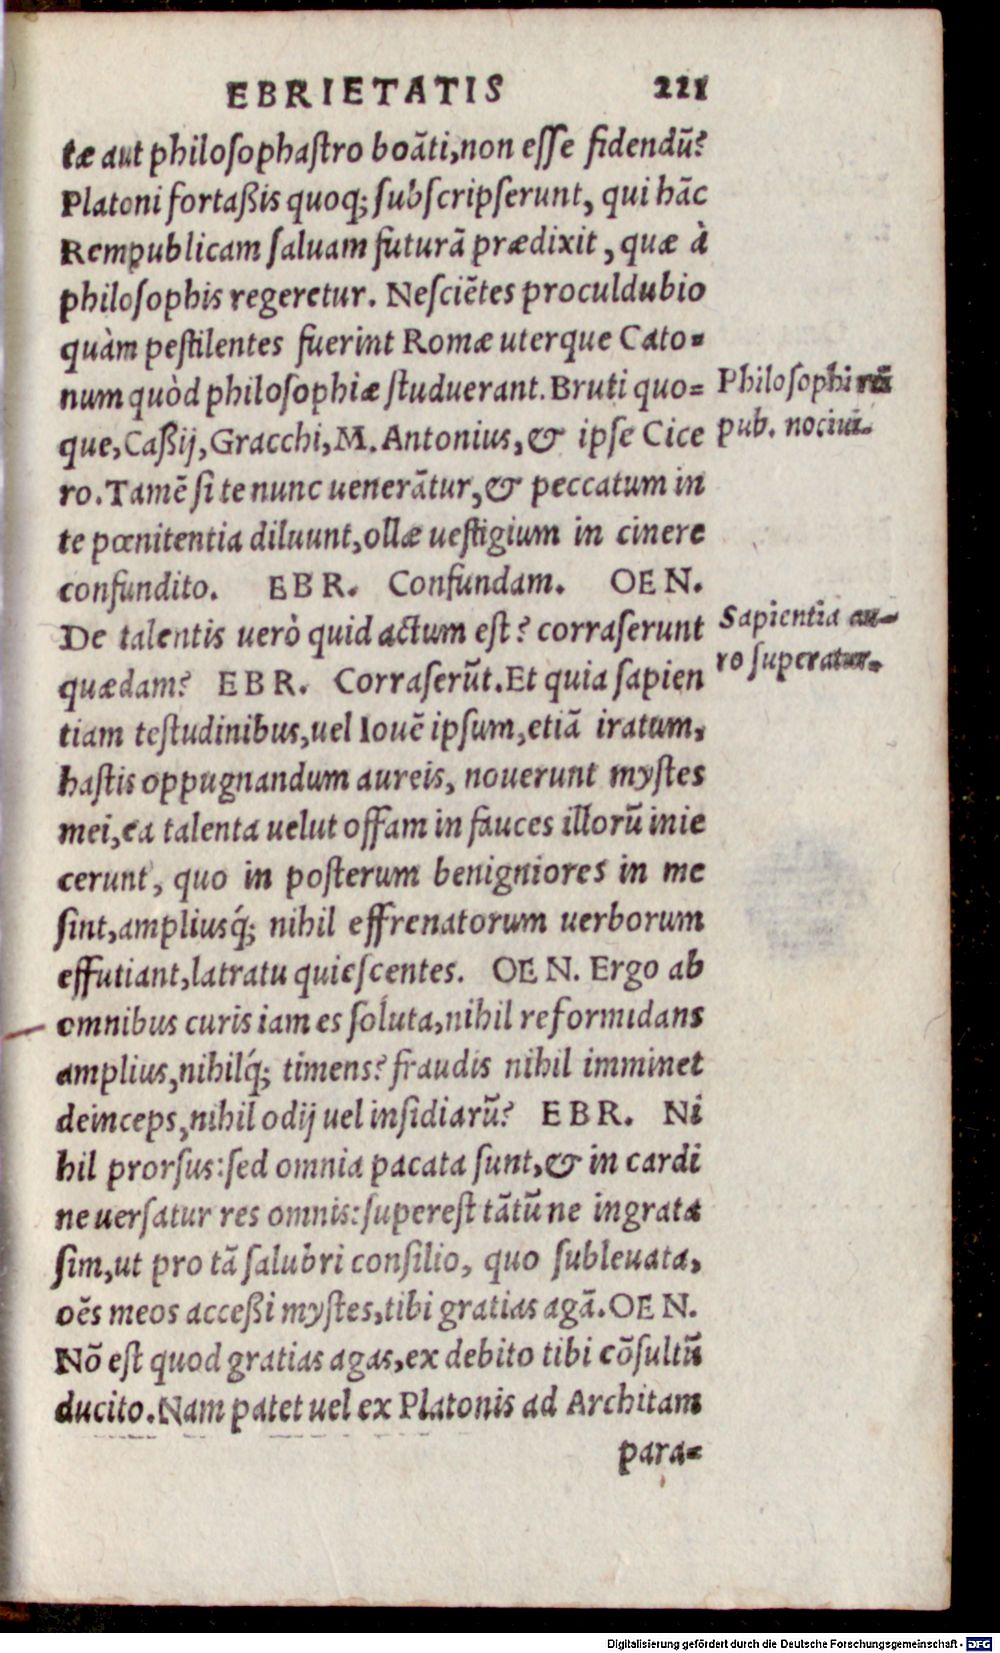 EBRIETATIS 221
tæ aut philosophastro boāti, non esse fidendū?
Platoni fortaßis quoq; subscripserunt, qui hāc
Rempublicam saluam futurā prædixit, quæ à
philosophis regeretur. Nesciētes proculdubio
quàm pestilentes fuerint Romæ uterque Cato-
num quòd philosophiæ studuerant. Bruti quo-
que, Caßij, Gracchi, M. Antonius, & ipse Cice
ro. Tamē si te nunc uenerātur, & peccatum in
te pœnitentia diluunt, ollæ uestigium in cinere
confundito. EBR. Confundam. OEN.
De talentis uerò quid actum est? corraserunt
quædam? EBR. Corraserūt. Et quia sapien
tiam testudinibus, uel Iouē ipsum, etiā iratum,
hastis oppugnandum aureis, nouerunt mystes
mei, ea talenta uelut offam in fauces illorū inie
cerunt, quo in posterum benigniores in me
sint, ampliusq́; nihil effrenatorum uerborum
effutiant, latratu quiescentes. OEN. Ergo ab
omnibus curis iam es soluta, nihil reformidans
amplius, nihilq́; timens? fraudis nihil imminet
deinceps, nihil odij uel insidiarū? EBR. Ni
hil prorsus: sed omnia pacata sunt, & in cardi
ne uersatur res omnis: superest tātū ne ingrata
sim, ut pro tā salubri consilio, quo subleuata,
oēs meos acceßi mystes, tibi gratias agā. OEN.
Nō est quod gratias agas, ex debito tibi cōsultū
ducito. Nam patet uel ex Platonis ad Architam
para-
Philosophi rei
pub. nociui.
Sapientia au-
ro superatur.
Digitalisierung gefördert durch die Deutsche Forschungsgemeinschaft - DFG